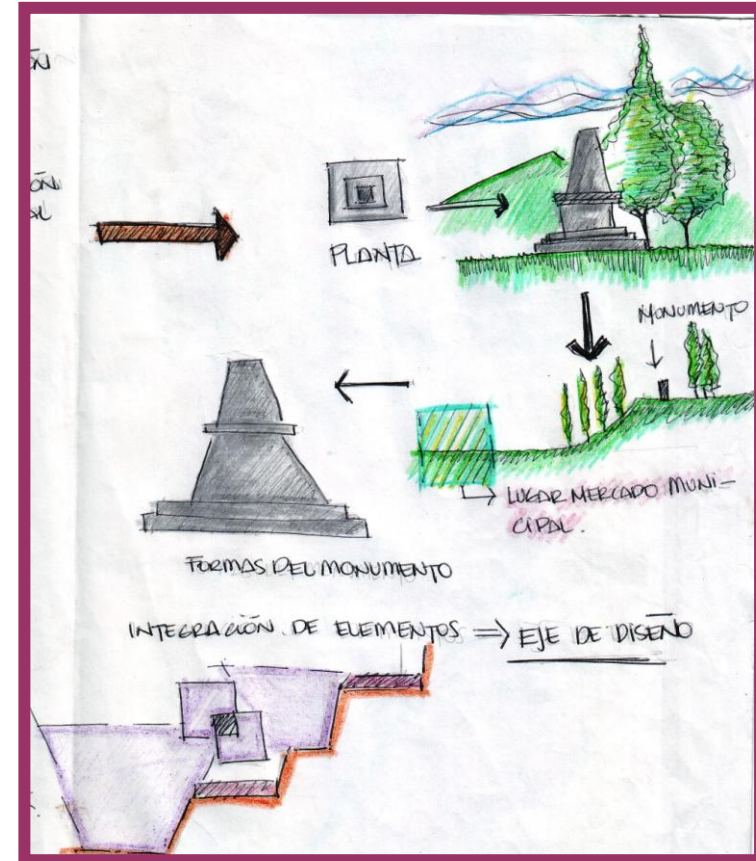 PLANTA
MONUMENTO
LUGAR MERCADO MUNI-
CIPAL.
FORMAS DEL MONUMENTO
INTEGRACIÓN DE ELEMENTOS => EJE DE DISEÑO